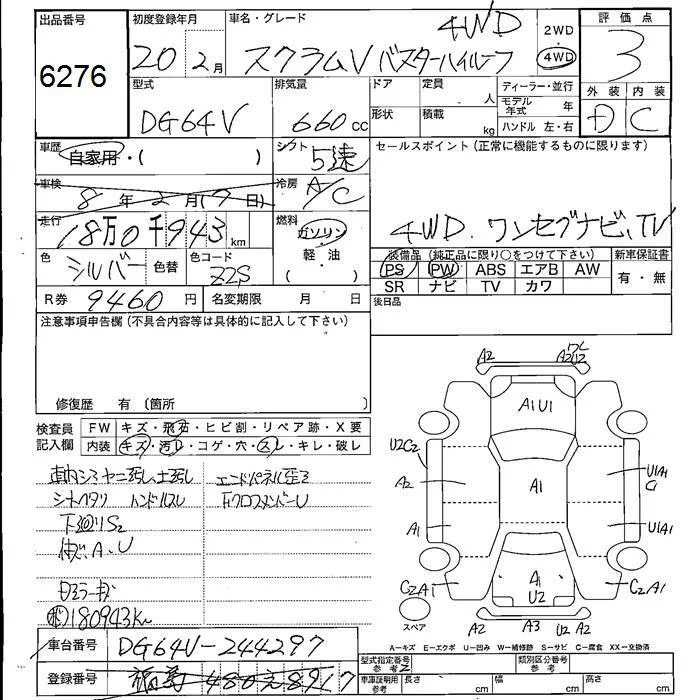 出品番号
6276
初度登録年月
20 2月
車名・グレード
4WD
スクラムV バスターハイルーフ
2WD
4WD
評価点
3
外装 内装
D C
型式
DG64V
排気量
660 cc
ドア
定員
人
形状
積載
kg
ディーラー・並行
モデル年式 年
ハンドル 左・右
車歴
自家用・( )
シフト
5速
セールスポイント(正常に機能するものに限ります)
4WD、ワンセグナビ、TV
車検
8年2月(9日)
冷房
A/C
走行
18万0千943km
燃料
ガソリン
軽・油
( )
色
シルバー
色替
色コード
Z2S
装備品(純正品に限り○をつけて下さい)
PS PW ABS エアB AW
SR ナビ TV カワ
新車保証書
有・無
R券 9460円
名変期限 月 日
後日品
注意事項申告欄(不具合内容等は具体的に記入して下さい)
修復歴 有(箇所 )
検査員記入欄
FW キズ・飛石・ヒビ割・リペア跡・X要
内装 キズ・汚レ・コゲ・穴・スレ・キレ・破レ
車内シミヤニ汚レ、土汚レ
シートヘタリ ハンドルスレ
下回りS2
A、U
エンドパネル歪ミ
FクロスメンバーU
180943Km
車台番号 DG64V-244297
登録番号
型式指定番号
参考
類別区分番号
車庫証明用
参考
長さ cm
幅 cm
高さ cm
A2
A2
U2
A1U1
U2C2
A2
A1
A1
U1A1
C1
U1A1
C2A1
A1
U2
C2A1
スペア
A2
A3
U2 A2
A−キズ E−エクボ U−凹み W−補修跡 S−サビ C−腐食 XX−交換済